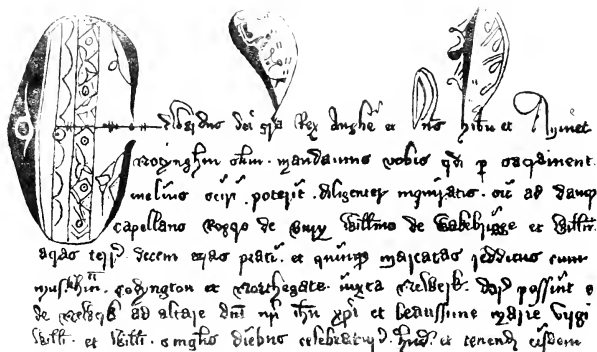 Edwardus dei gra Rex Angl et Dns Hibn et Aquiet
Notynghm mandamus vobis qd p sacrament
melius sciri poterit. diligenter inquiratis. si ad dampn
capellano Rogo de Willmo de et Willm
acras terr. decem acras prati. et quinq marcatas redditus cum
muskhm. Codyngton et Northegate. iuxta Newerk. possint
de Newerk ad altare dni nri ihu xpi et beatissime marie virgi
Willi. et Willi. singlis diebus celebratur. Hnd. et tenend eisdem